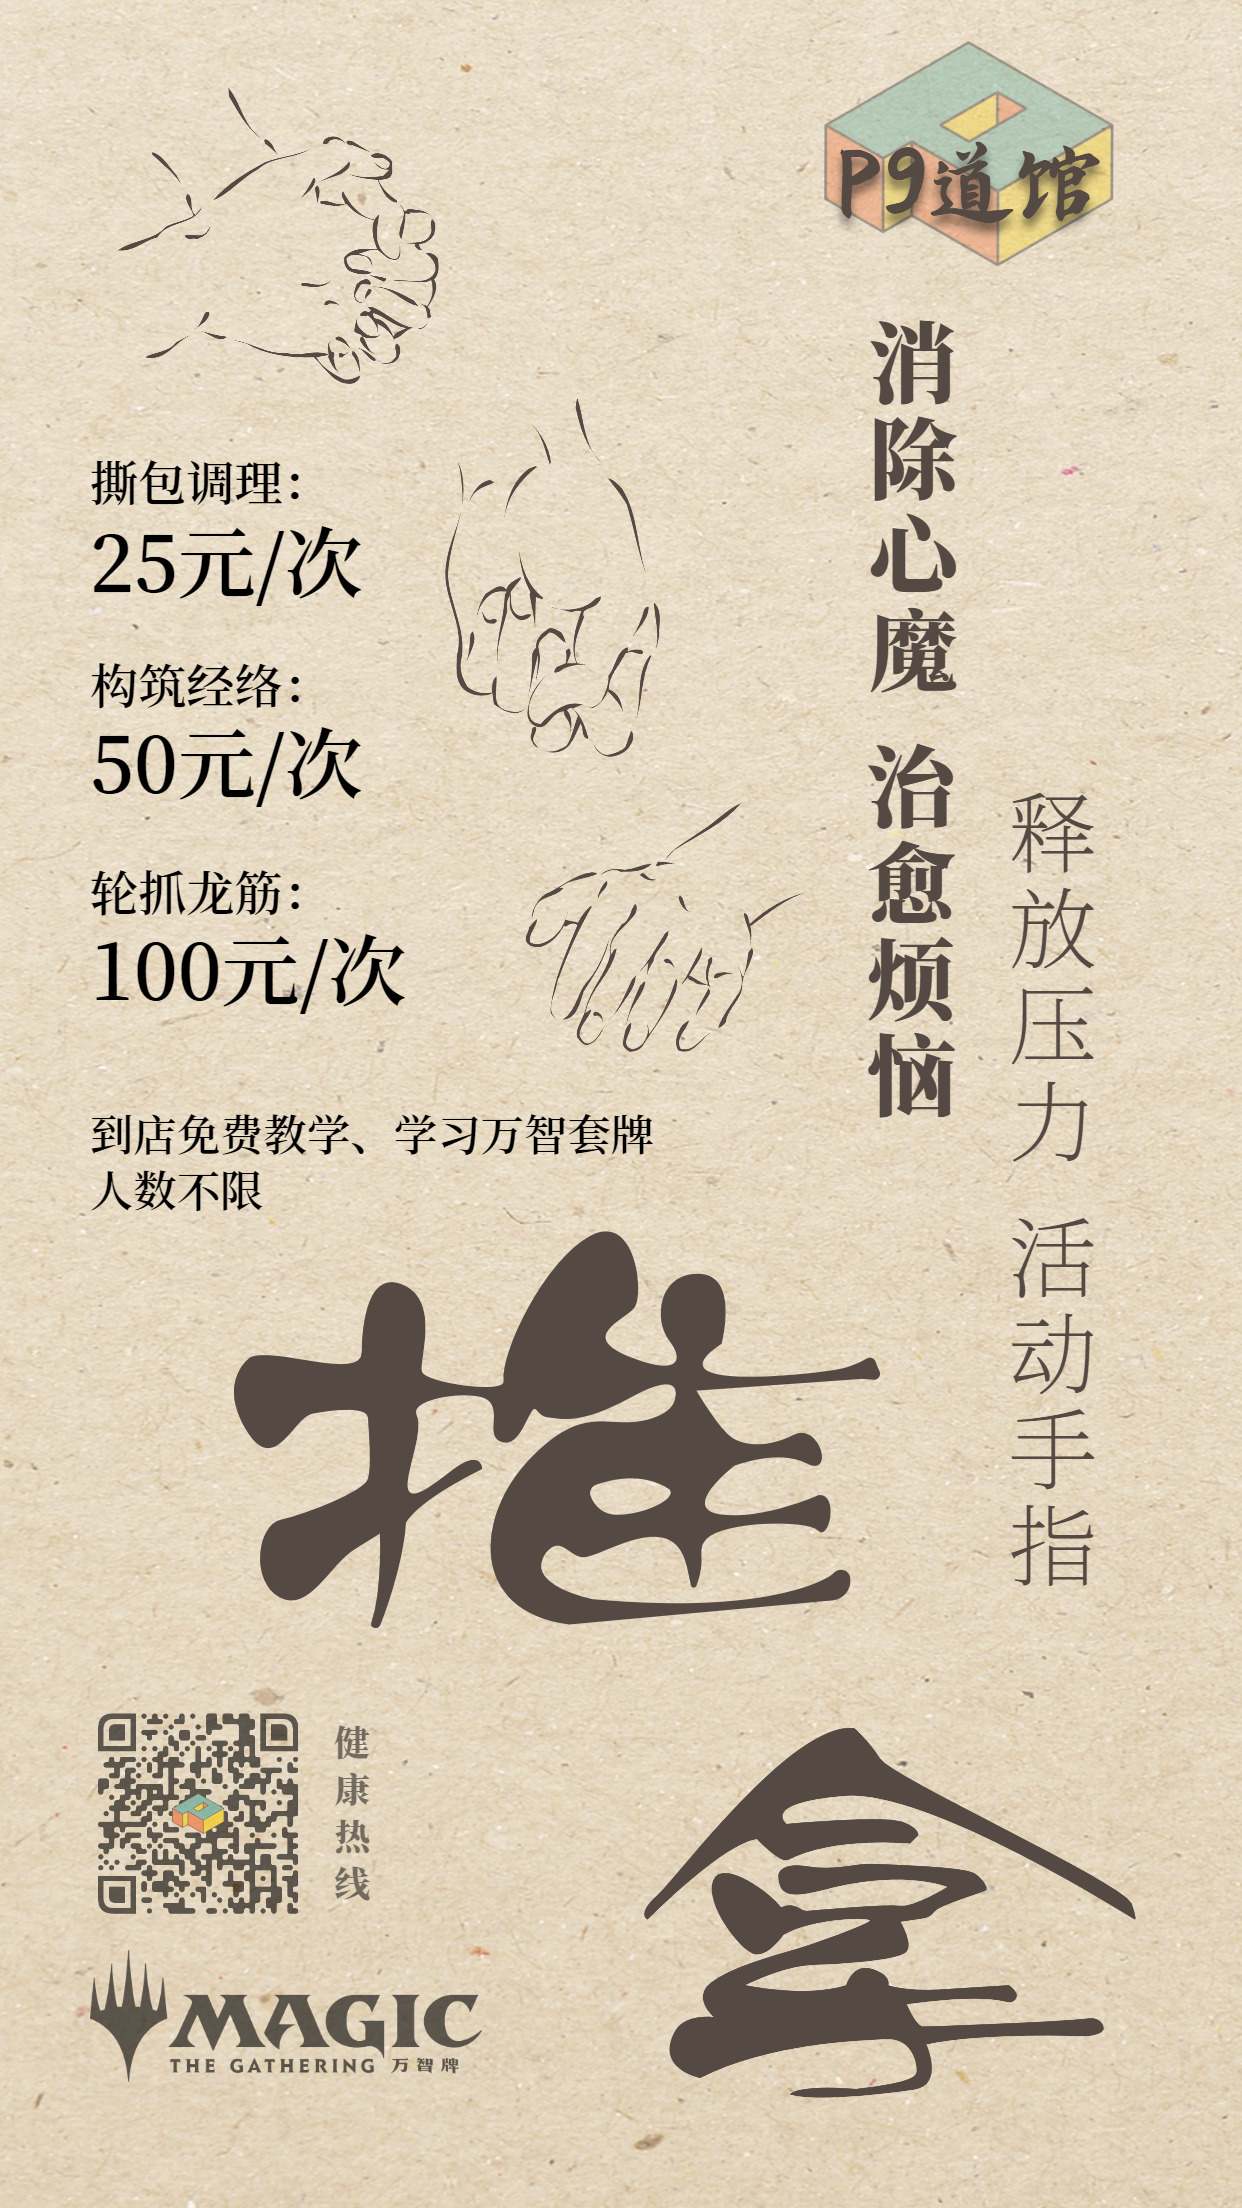 P9道馆
消除心魔 治愈烦恼
释放压力 活动手指
撕包调理：
25元/次
构筑经络：
50元/次
轮抓龙筋：
100元/次
到店免费教学、学习万智套牌
人数不限
推
拿
健康热线
MAGIC
THE GATHERING 万智牌